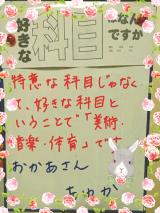 好きな科目はなんですか
特意な科目じゃなく
て、好きな科目と
いうことで「美術・
音楽・体育」で
おかあさん